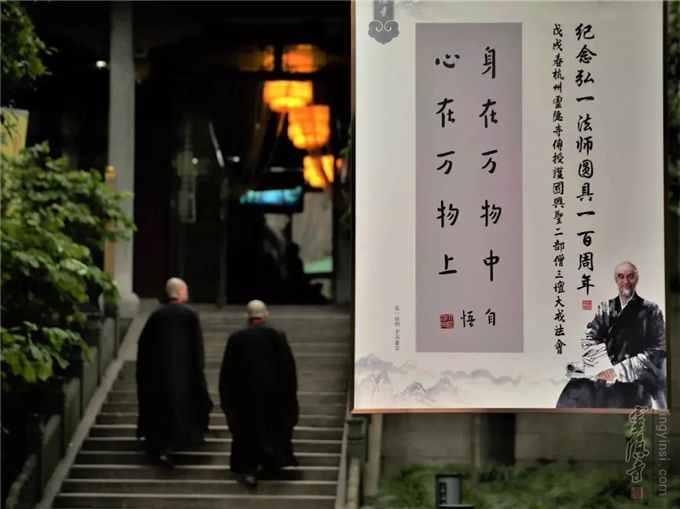 纪念弘一法师圆具一百周年
戊戌春杭州靈隐寺傳授護國興聖二部僧三壇大戒法會
身在万物中
心在万物上
自悟
靈隐寺
lingyinsi.com